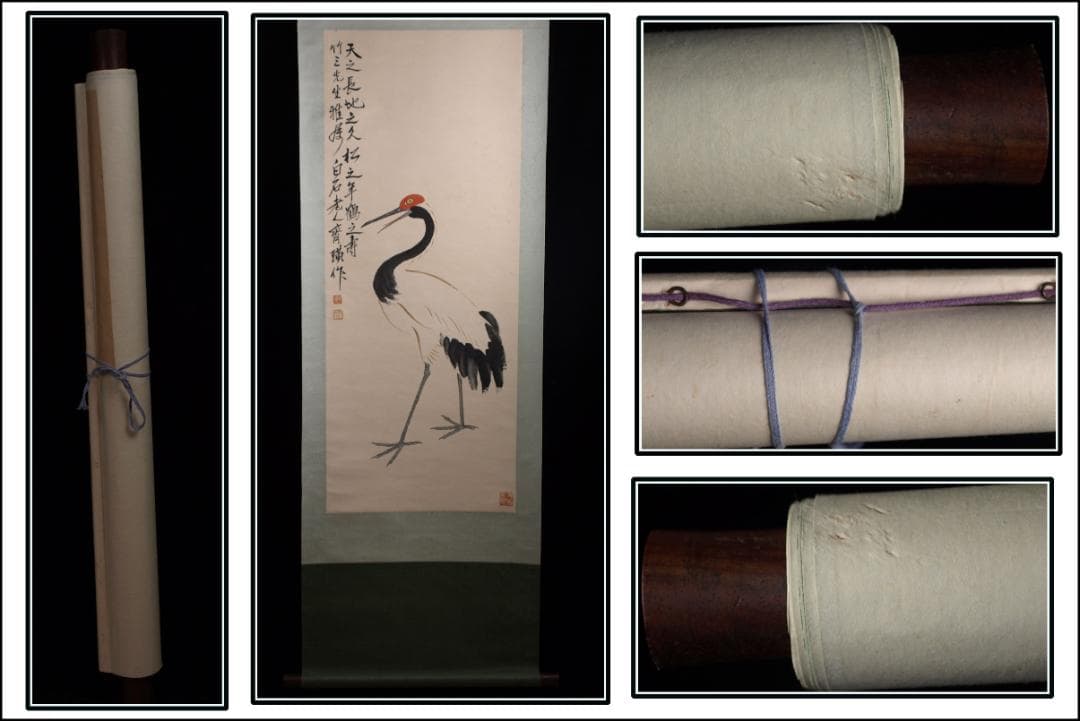 天之長地之久松之年鶴之壽
竹三先生雅屬 白石老人齊璜作